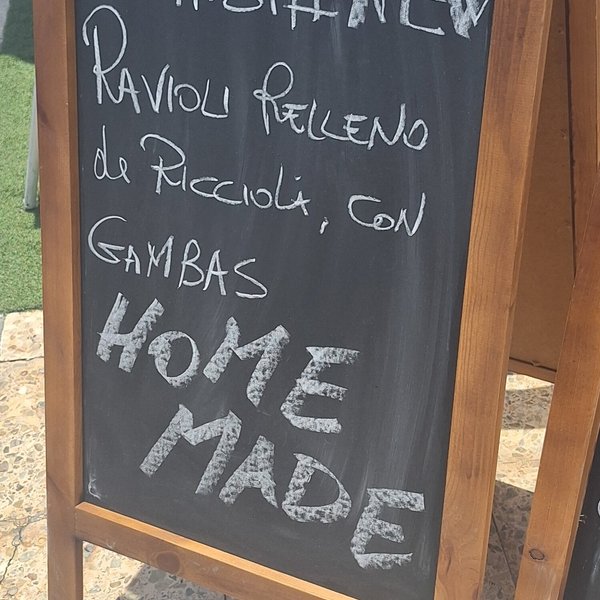 #NEW
RAVIOLI RELLENO
de RICCIOLA, CON
GAMBAS
HOME
MADE